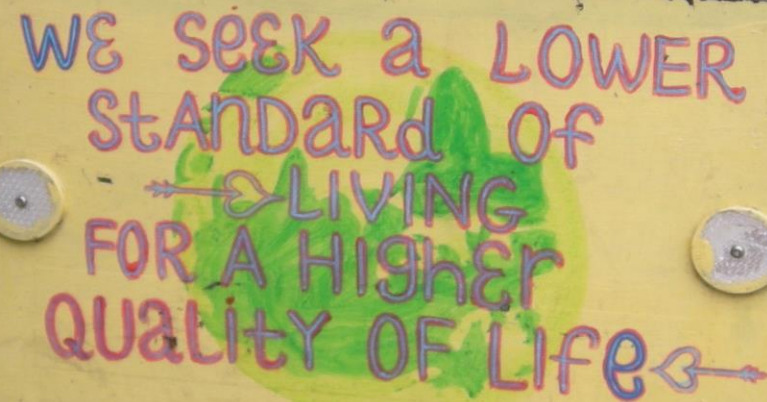 WE SEEK a LOWER
StANDaRd Of
LIVING
FOR A HIghEr
QUaLitY OF LIfe